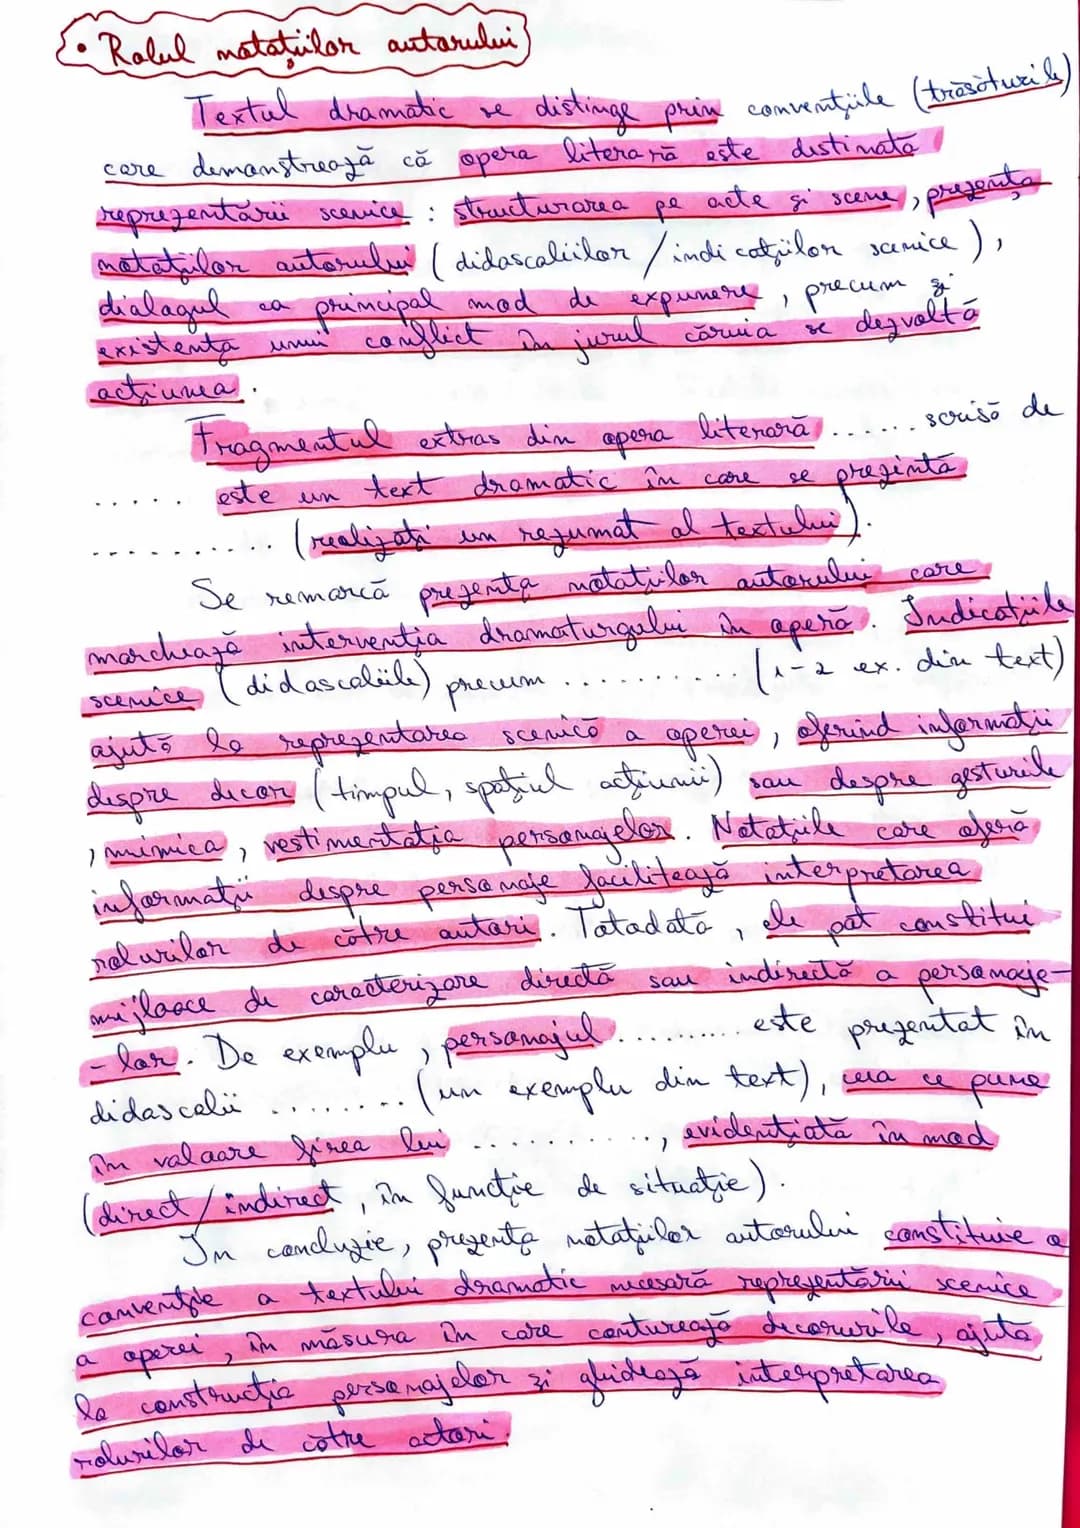 • Rolul notațiilor autorului
Textul dramatic se distinge prin convențiile (trăsăturile)
care demonstrează că opera literară este distinată
reprezentării scenice : structurarea pe acte și scene, prezența
notațiilor autorului ( didascaliilor / indicațiilor scenice ),
dialogul ca principal mod de expunere, precum și
existența unui conflict în jurul căruia se dezvoltă
acțiunea.
Fragmentul extras din opera literară ...... scrisă de
..... este un text dramatic în care se prezintă
.......... (realizați un rezumat al textului).
Se remarcă prezența notațiilor autorului care
marchează intervenția dramaturgului în operă. Indicațiile
scenice ( didascaliile) precum ........... (1-2 ex. din text)
ajută la reprezentarea scenică a operei, oferind informații
despre decor (timpul, spațiul acțiunii) sau despre gesturile
, mimica, vestimentația personajelor. Notațiile care oferă
informații despre personaje facilitează interpretarea
rolurilor de către autori. Totodată, ele pot constitui
mijloace de caracterizare directă sau indirectă a personaje-
- lor. De exemplu, personajul.......... este prezentat în
didascalii ........ (un exemplu din text), ceea ce pune
în valoare firea lui .........., evidențiată în mod
(direct / indirect, în funcție de situație).
În concluzie, prezența notațiilor autorului constituie o
convenție a textului dramatic necesară reprezentării scenice
a operei, în măsura în care conturează decorurile, ajuta
la construcția personajelor și ghidează interpretarea
rolurilor de către actori.